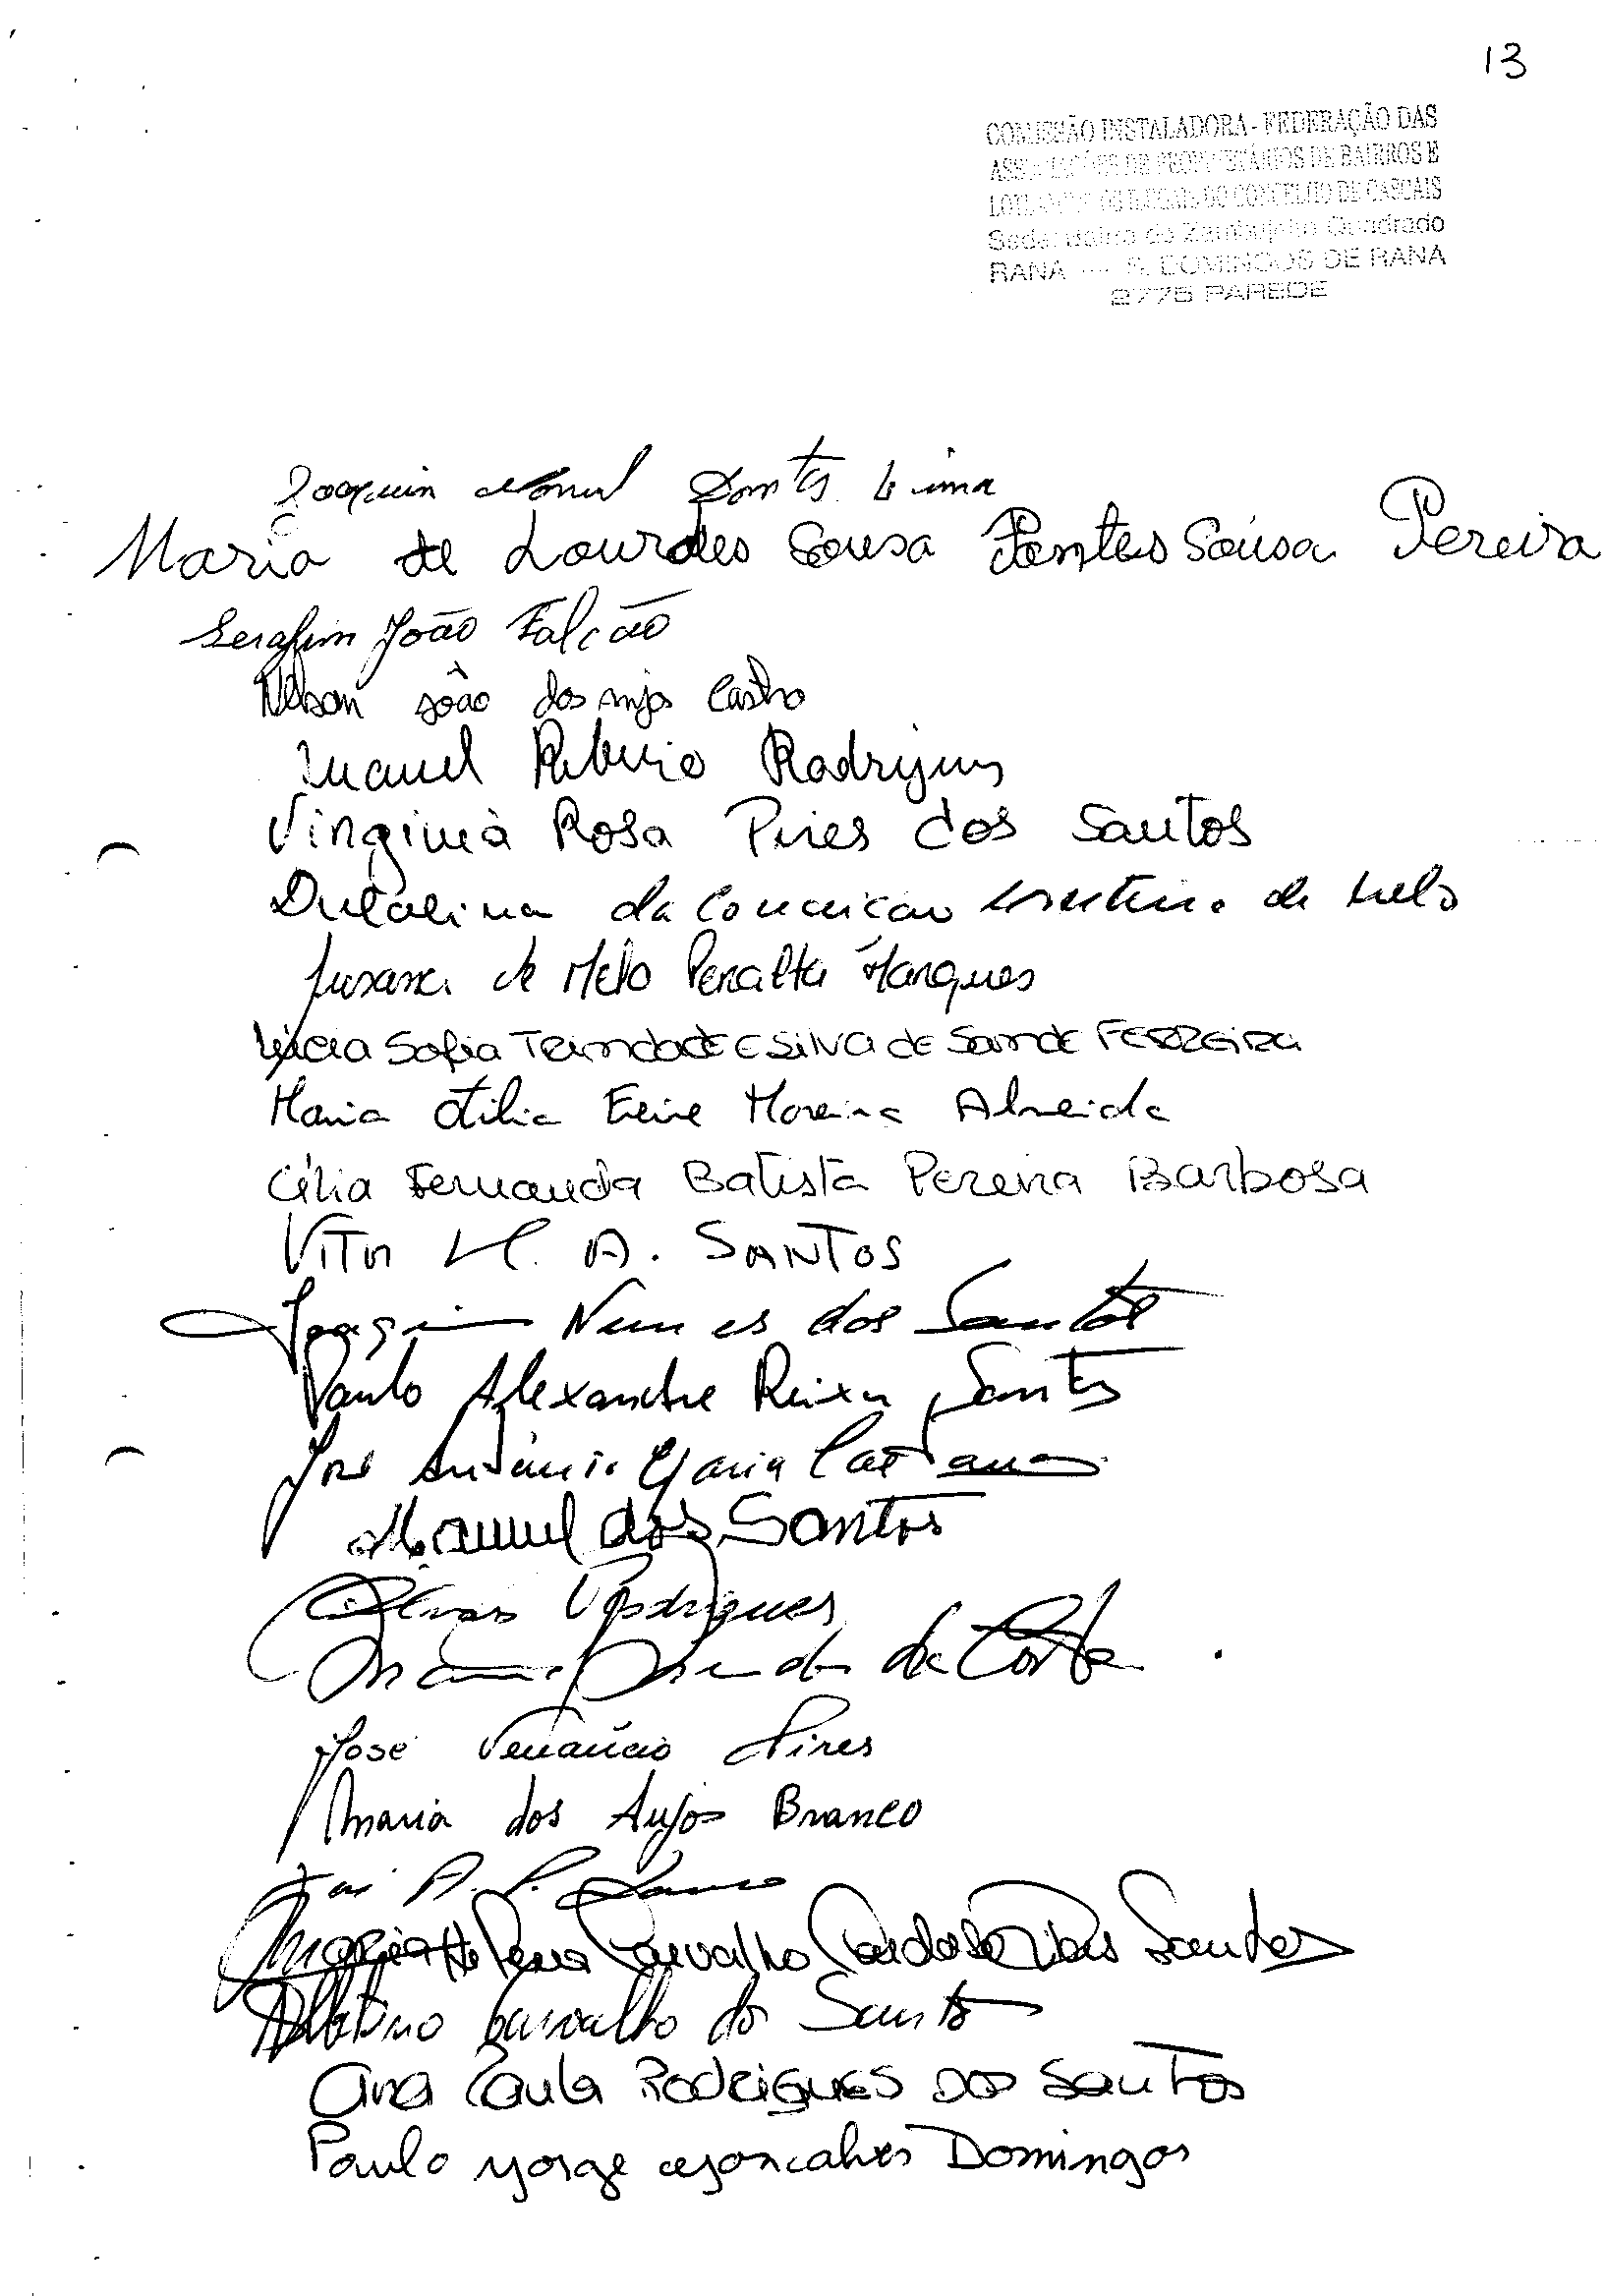 13
COMISSÃO INSTALADORA - FEDERAÇÃO DAS
ASSOCIAÇÕES DE PROPRIETÁRIOS DE BAIRROS E
DO CONCELHO DE CASCAIS
Quadrado
RANA — S. DOMINGOS DE RANA
2775 PAREDE
Joaquim Lima
Maria de Lourdes Sousa Fontes Sousa Pereira
Serafim João Falcão
Nelson João dos Anjos Castro
Manuel Ribeiro Rodrigues
Virginia Rosa Pires dos Santos
da Conceicao de Melo
Susana de Melo Peralta Marques
Lúcia Sofia Trindade e Silva de Sande FERREIRA
Maria Otilia Freire Moreira Almeida
Célia Fernanda Batista Pereira Barbosa
VITOR M. A. SANTOS
Joaquim Nunes dos Santos
Paulo Alexandre Santos
José António Maria
Manuel dos Santos
Rodrigues
da Costa
José Venâncio Pires
Maria dos Anjos Branco
A. P.
Maria Helena Carvalho Cardoso Dias Santos
Carvalho dos Santos
Ana Paula Rodrigues dos Santos
Paulo Jorge Goncalves Domingos